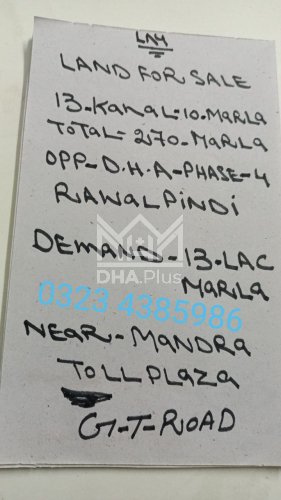 LN4
LAND FOR SALE
13-KANAL=10-MARLA
TOTAL=270-MARLA
OPP-D.H.A-PHASE-4
RAWALPINDI
DEMAND-13-LAC
MARLA
DHA.Plus
0323 4385986
NEAR-MANDRA
TOLL PLAZA
G-T-ROAD